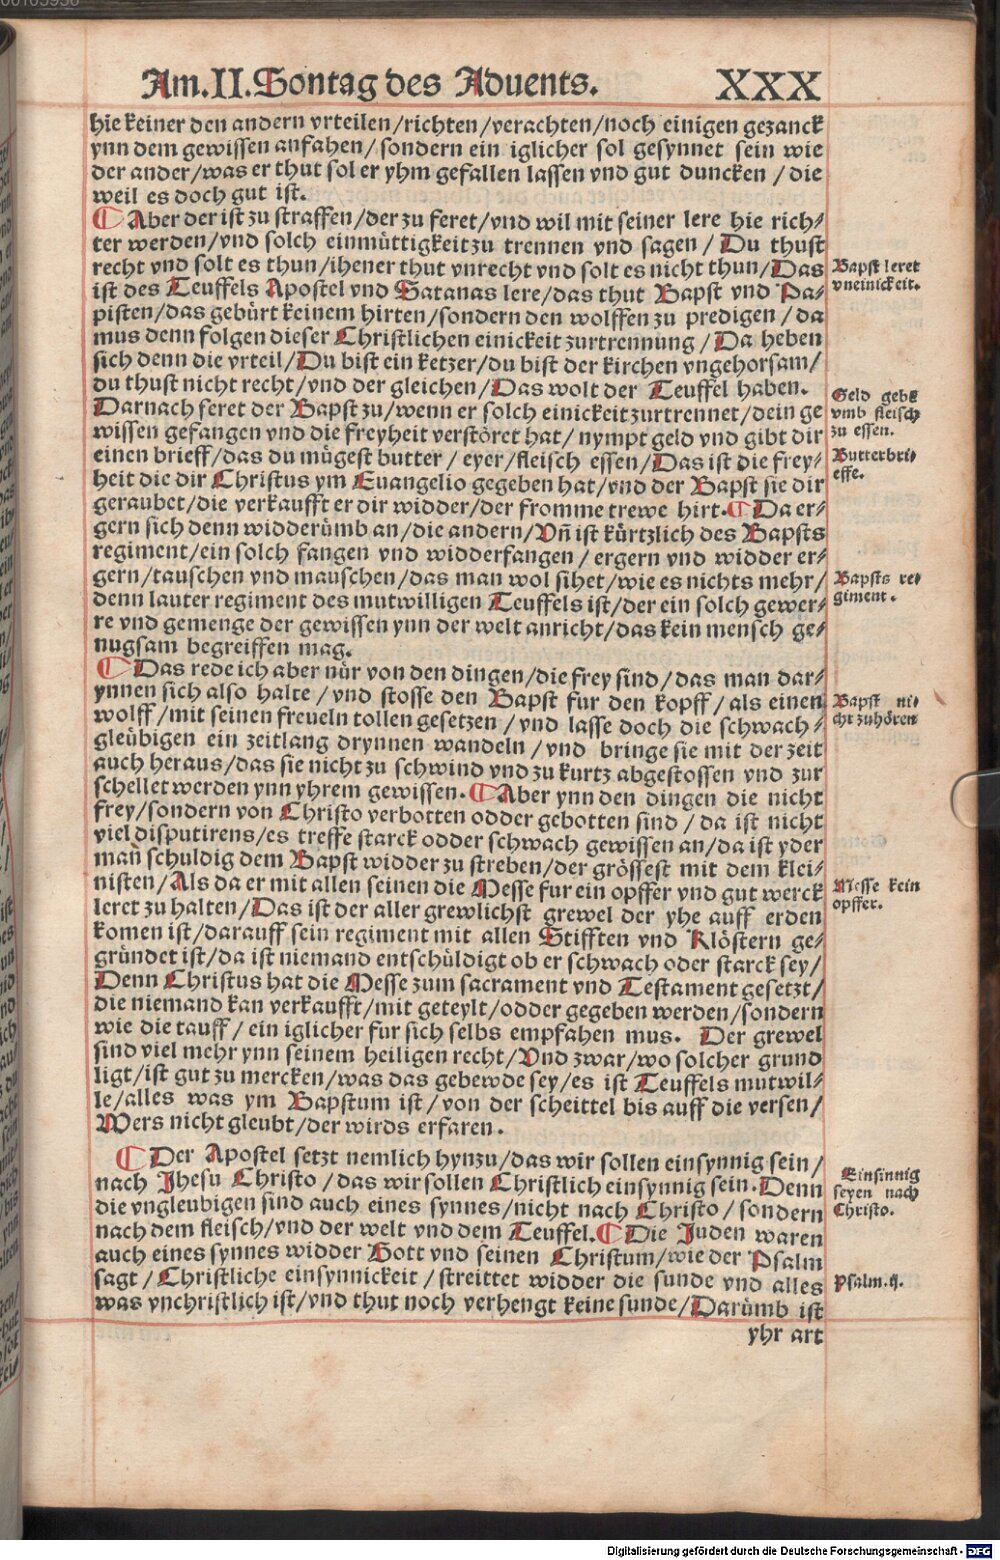 Am.II.Sontag des Aduents. XXX
hie keiner den andern vrteilen/richten/verachten/noch einigen gezanck
ynn dem gewissen anfahen/sondern ein iglicher sol gesynnet sein wie
der ander/was er thut sol er yhm gefallen lassen vnd gut duncken/die
weil es doch gut ist.
Aber der ist zu straffen/der zu feret/vnd wil mit seiner lere hie rich-
ter werden/vnd solch einmüttigkeit zu trennen vnd sagen/Du thust
recht vnd solt es thun/ihener thut vnrecht vnd solt es nicht thun/Das
ist des Teuffels Apostel vnd Satanas lere/das thut Bapst vnd Pa-
pisten/das gebürt keinem hirten/sondern den wolffen zu predigen/da
mus denn folgen dieser Christlichen einickeit zurtrennung/Da heben
sich denn die vrteil/Du bist ein ketzer/du bist der kirchen vngehorsam/
du thust nicht recht/vnd der gleichen/Das wolt der Teuffel haben.
Darnach feret der Bapst zu/wenn er solch einickeit zurtrennet/dein ge
wissen gefangen vnd die freyheit verstöret hat/nympt geld vnd gibt dir
einen brieff/das du mügest butter/eyer/fleisch essen/Das ist die frey-
heit die dir Christus ym Euangelio gegeben hat/vnd der Bapst sie dir
geraubet/die verkaufft er dir widder/der fromme trewe hirt. Da er-
gern sich denn widderümb an/die andern/Vn̄ ist kürtzlich des Bapsts
regiment/ein solch fangen vnd widderfangen/ergern vnd widder er-
gern/tauschen vnd mauschen/das man wol sihet/wie es nichts mehr/
denn lauter regiment des mutwilligen Teuffels ist/der ein solch gewer-
re vnd gemenge der gewissen ynn der welt anricht/das kein mensch ge-
nugsam begreiffen mag.
Das rede ich aber nür von den dingen/die frey sind/das man dar-
ynnen sich also halte/vnd stosse den Bapst fur den kopff/als einen
wolff/mit seinen freueln tollen gesetzen/vnd lasse doch die schwach-
gleübigen ein zeitlang drynnen wandeln/vnd bringe sie mit der zeit
auch heraus/das sie nicht zu schwind vnd zu kurtz abgestossen vnd zur
schellet werden ynn yhrem gewissen. Aber ynn den dingen die nicht
frey/sondern von Christo verbotten odder gebotten sind/da ist nicht
viel disputirens/es treffe starck odder schwach gewissen an/da ist yder
man̄ schuldig dem Bapst widder zu streben/der grössest mit dem klei-
nisten/Als da er mit allen seinen die Messe fur ein opffer vnd gut werck
leret zu halten/Das ist der aller grewlichst grewel der yhe auff erden
komen ist/darauff sein regiment mit allen Stifften vnd Klöstern ge-
gründet ist/da ist niemand entschüldigt ob er schwach oder starck sey/
Denn Christus hat die Messe zum sacrament vnd Testament gesetzt/
die niemand kan verkaufft/mit geteylt/odder gegeben werden/sondern
wie die tauff/ein iglicher fur sich selbs empfahen mus. Der grewel
sind viel mehr ynn seinem heiligen recht/Vnd zwar/wo solcher grund
ligt/ist gut zu mercken/was das gebewde sey/es ist Teuffels mutwil-
le/alles was ym Bapstum ist/von der scheittel bis auff die versen/
Wers nicht gleubt/der wirds erfaren.
Der Apostel setzt nemlich hynzu/das wir sollen einsynnig sein/
nach Jhesu Christo/das wir sollen Christlich einsynnig sein. Denn
die vngleubigen sind auch eines synnes/nicht nach Christo/sondern
nach dem fleisch/vnd der welt vnd dem Teuffel. Die Juden waren
auch eines synnes widder Gott vnd seinen Christum/wie der Psalm
sagt/Christliche einsynnickeit/streittet widder die sunde vnd alles
was vnchristlich ist/vnd thut noch verhengt keine sunde/Darümb ist
yhr art
Bapst leret
vneinickeit.
Geld gebē
vmb fleisch
zu essen.
Butterbri-
effe.
Bapsts re-
giment.
Bapst ni-
cht zuhören
Messe kein
opffer.
Einsinnig
seyen nach
Christo.
Psalm.ij.
Digitalisierung gefördert durch die Deutsche Forschungsgemeinschaft - DFG